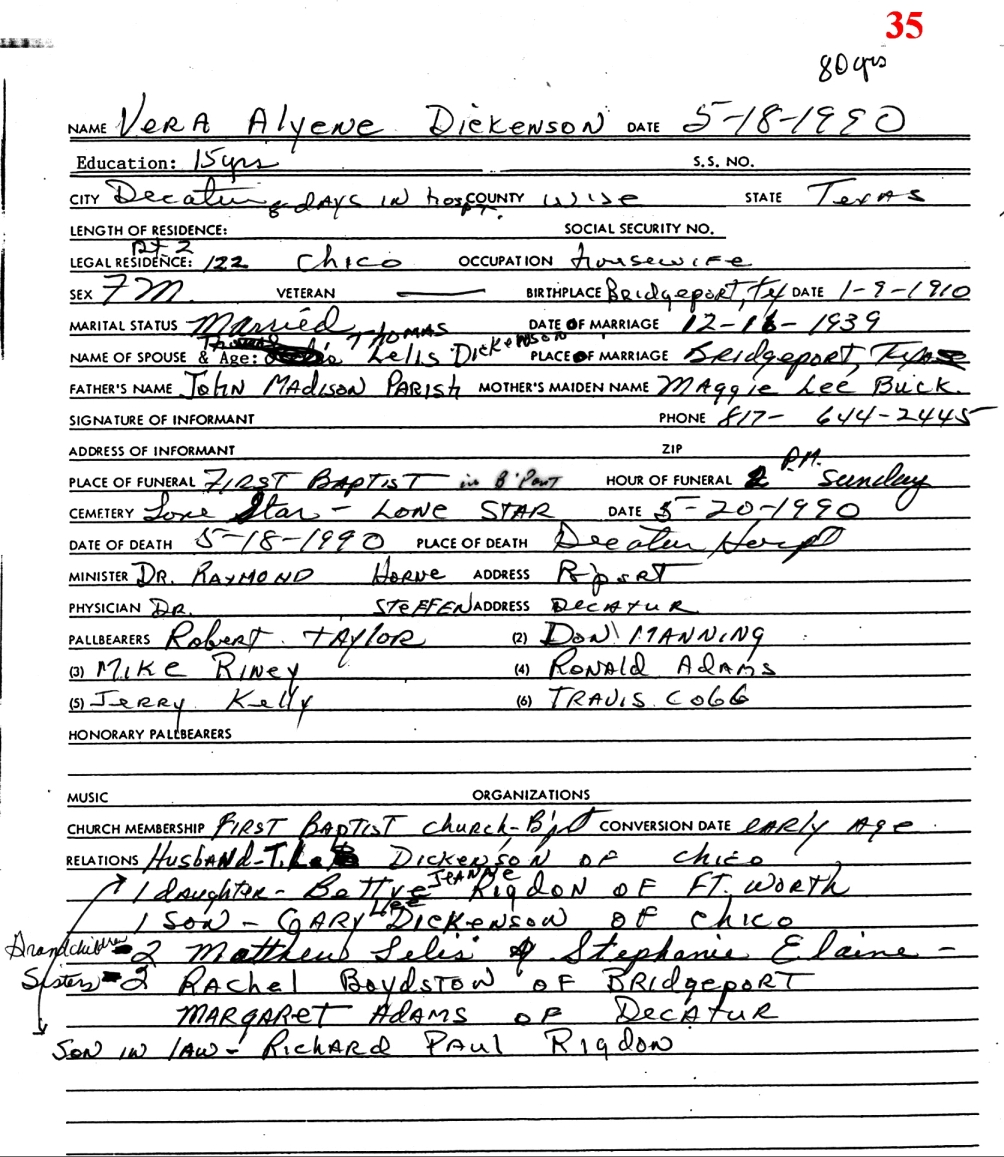 35
80 yrs
NAME VERA Alyene Dickenson DATE 5-18-1990
Education: 15 yrs S.S. NO.
CITY Decatur 8 DAYS IN hospt. COUNTY Wise STATE TEXAS
LENGTH OF RESIDENCE: SOCIAL SECURITY NO.
LEGAL RESIDENCE: Rt 2 122 Chico OCCUPATION Housewife
SEX FM. VETERAN BIRTHPLACE Bridgeport, Tx DATE 1-9-1910
MARITAL STATUS Married DATE OF MARRIAGE 12-16-1939
NAME OF SPOUSE & Age: Thomas THOMAS Lelis Dickenson PLACE OF MARRIAGE Bridgeport, Texas
FATHER'S NAME John MADISON PARISH MOTHER'S MAIDEN NAME MAggie Lee Buck.
SIGNATURE OF INFORMANT PHONE 817- 644-2445
ADDRESS OF INFORMANT ZIP
PLACE OF FUNERAL FIRST BAPTIST in B'Port HOUR OF FUNERAL 2 P.M. Sunday
CEMETERY Lone Star - LONE STAR DATE 5-20-1990
DATE OF DEATH 5-18-1990 PLACE OF DEATH Decatur Hospt
MINISTER DR. RAYMOND Horne ADDRESS B'port
PHYSICIAN DR. STEFFEN ADDRESS DECATUR
PALLBEARERS Robert TAYLOR (2) DON MANNING
(3) MIKE RINEY (4) RONALD ADAMS
(5) JERRY Kelly (6) TRAVIS COBB
HONORARY PALLBEARERS
MUSIC ORGANIZATIONS
CHURCH MEMBERSHIP FIRST BAPTIST church-B'pt CONVERSION DATE EARLY Age
RELATIONS HUSBAND-T. DICKENSON OF Chico
1 daughter - Bettye JEANNE RIGDON OF FT. WORTH
1 SON - GARY Lee DICKENSON OF Chico
Grandchildren-2 Matthew Lelis & Stephanie Elaine -
Sisters-2 RAchel BOYDSTON OF BRIdgePORT
MARGARET ADAMS OF DECATUR
SON IN LAW - RICHARD PAUL RIGDON